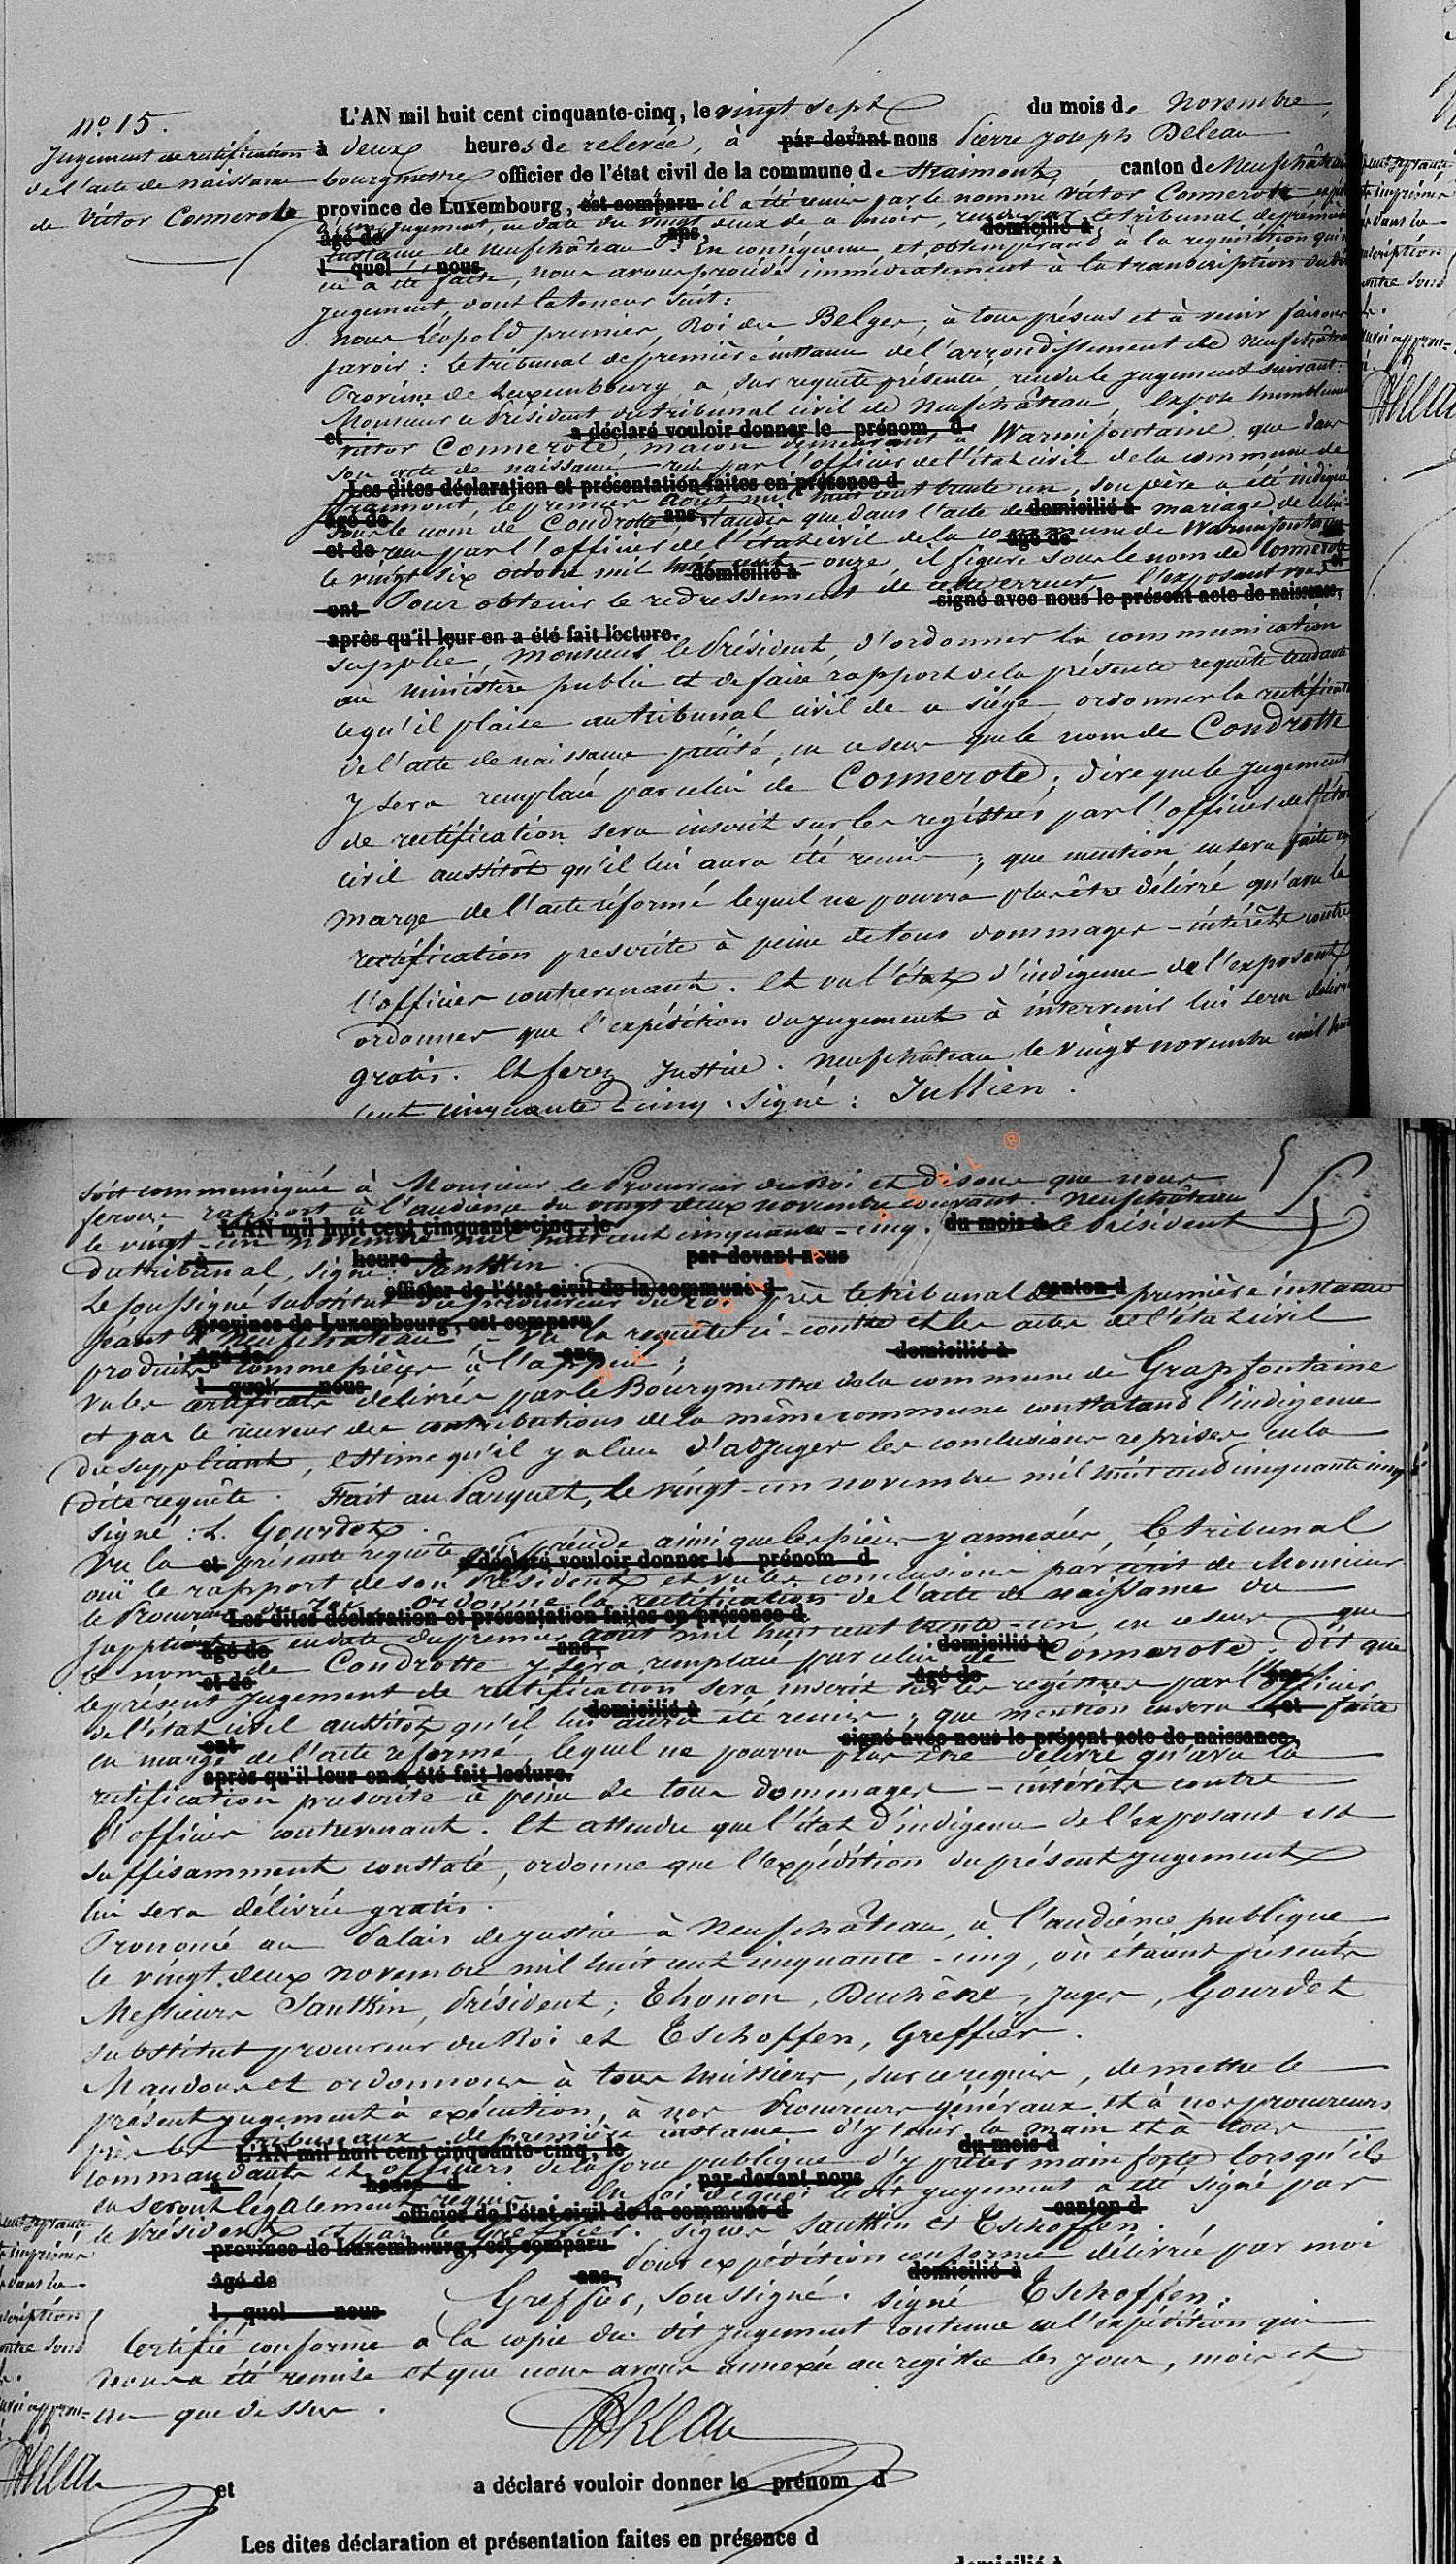 n° 15.
Jugement de rectification
de l'acte de naissance
de Victor Connerote
L'AN mil huit cent cinquante-cinq, le vingt sept du mois de novembre
à deux heures de relevée, à par devant nous Pierre Joseph Deleau
bourgmestre officier de l'état civil de la commune de Straimont, canton de Neufchâteau
province de Luxembourg, est comparu il a été remis par le nommé Victor Connerote
jugement, en date du vingt deux de ce mois, rendu par le tribunal de première
âgé de ans, domicilié à
instance de Neufchâteau. En conséquence et obtempérant à la réquisition qui
l quel nous
en a été faite, nous avons procédé immédiatement à la transcription dudit
jugement, dont la teneur suit :
nous Léopold premier, Roi des Belges, à tous présens et à venir faisons
savoir : Le tribunal de première instance de l'arrondissement de Neufchâteau
Province de Luxembourg, a, sur requête présentée, rendu le jugement suivant :
Monsieur le Président du tribunal civil de Neufchâteau, expose humblement
et a déclaré vouloir donner le prénom d
Victor Connerote, maçon demeurant à Warmifontaine, que dans
son acte de naissance reçu par l'officier de l'état civil de la commune de
Les dites déclaration et présentation faites en présence d
Straimont, le premier août mil huit cent trente un, son père a été indiqué
âgé de ans, domicilié à
sous le nom de Condrotte, tandis que dans l'acte de mariage de celui-
et de âgé de
reçu par l'officier de l'état civil de la commune de Warmifontaine
le vingt six octobre mil huit cent onze, il figure sous le nom de Connerote
domicilié à et
ont Pour obtenir le redressement de cette erreur l'exposant vous
signé avec nous le présent acte de naissance,
après qu'il leur en a été fait lecture.
supplie, Monsieur le Président, d'ordonner la communication
au ministère public et de faire rapport de la présente requête tendante
à ce qu'il plaise au tribunal civil de ce siége, ordonner la rectification
de l'acte de naissance précité, en ce sens que le nom de Condrotte
y sera remplacé par celui de Connerote ; dire que le jugement
de rectification sera inscrit sur les régistres par l'officier de l'état
civil aussitôt qu'il lui aura été remis ; que mention en sera faite en
marge de l'acte réformé lequel ne pourra plus être délivré qu'avec la
rectification prescrite à peine de tous dommages-intérêts contre
l'officier contrevenant. Et vu l'état d'indigence de l'exposant
ordonner que l'expédition du jugement à intervenir lui sera délivrée
gratis. Et ferez justice. Neufchâteau le vingt novembre mil huit
cent cinquante cinq. Signé : Jullien.
soit communiquée à Monsieur le Procureur du Roi et disons que nous
ferons rapport à l'audience du vingt deux novembre courant. Neufchâteau
L'AN mil huit cent cinquante-cinq, le du mois d
le vingt-un novembre mil huit cent cinquante-cinq. le Président
à heure d par devant nous
du tribunal, signé : Santkin.
officier de l'état civil de la commune d canton d
Le soussigné substitut du procureur du roi près le tribunal de première instance
province de Luxembourg, est comparu
séant à Neufchâteau - Vu la requête ci-contre et les actes de l'état civil
âgé de ans, domicilié à
produits comme pièces à l'appui ;
l quel nous
Vu les certificats délivrés par le Bourgmestre de la commune de Grapfontaine
et par le receveur des contributions de la même commune constatant l'indigence
du suppliant, estime qu'il y a lieu d'adjuger les conclusions reprises en la
dite requête. Fait au Parquet, le vingt-un novembre mil huit cent cinquante cinq
signé : L. Gourdet.
Vu la présente requête qui précède ainsi que les pièces y annexées, le tribunal
et a déclaré vouloir donner le prénom d
ouï le rapport de son Président et vu les conclusions par écrit de Monsieur
le Procureur du roi ordonne la rectification de l'acte de naissance du
Les dites déclaration et présentation faites en présence d
suppliant en date du premier août mil huit cent trente-un, en ce sens que
âgé de ans, domicilié à
le nom de Condrotte y sera remplacé par celui de Connerote. Dit que
et de âgé de ans
le présent jugement de rectification sera inscrit sur les régistres par l'officier
domicilié à et
de l'état civil aussitôt qu'il lui aura été remis ; que mention en sera faite
ont signé avec nous le présent acte de naissance,
en marge de l'acte réformé, lequel ne pourra plus être délivré qu'avec la
après qu'il leur en a été fait lecture.
rectification prescrite à peine de tous dommages-intérêts contre
l'officier contrevenant. Et attendu que l'état d'indigence de l'exposant est
suffisamment constaté, ordonne que l'expédition du présent jugement
lui sera délivrée gratis.
Prononcé au Palais de justice à Neufchâteau, à l'audience publique
le vingt deux novembre mil huit cent cinquante-cinq, où étaient présents
Messieurs Santkin, Président ; Thonon, Duchêne, juges, Gourdet
substitut procureur du Roi et Tschoffen, Greffier.
Mandons et ordonnons à tous huissiers, sur ce requis, de mettre le
présent jugement à exécution, à nos Procureurs généraux et à nos procureurs
près les tribunaux de première instance d'y tenir la main et à tous
L'AN mil huit cent cinquante-cinq, le du mois d
commandants et officiers de la force publique d'y prêter main forte lorsqu'ils
à heure d par-devant nous
en seront légalement requis. En foi de quoi le dit jugement a été signé par
officier de l'état civil de la commune d canton d
le Président et par le Greffier. Signés Santkin et Tschoffen.
province de Luxembourg, est comparu
Pour expédition conforme délivrée par moi
âgé de ans, domicilié à
Greffier, soussigné. signé Tschoffen.
l quel nous
Certifié conforme à la copie du dit jugement contenue en l'expédition qui
nous a été remise et que nous avons annexée au registre les jour, mois et
an que dessus.
PJDeleau
et a déclaré vouloir donner le prénom d
Les dites déclaration et présentation faites en présence d
domicilié à